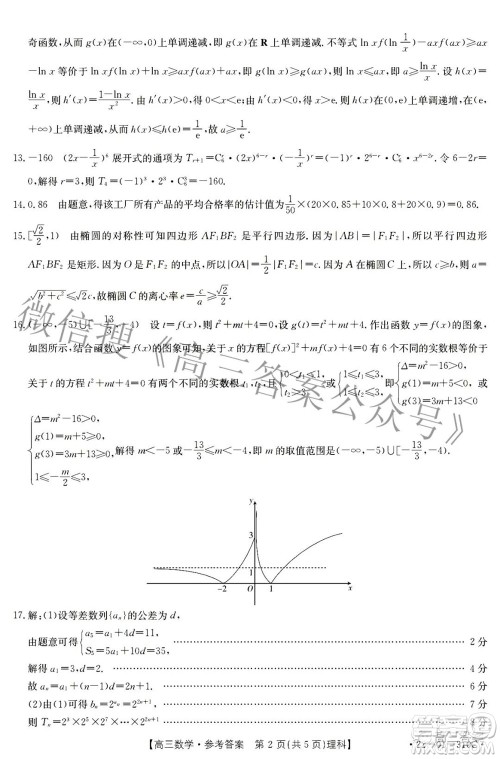 奇函数,从而 g(x)在(-∞,0)上单调递减,即 g(x)在 R 上单调递减. 不等式 ln xf(ln 1/x)-axf(ax)>ax
-ln x 等价于 ln xf(ln x)+ln x≥axf(ax)+ax,即 g(ln x)≥g(ax),则 ln x≤ax,即 a≥ln x/x. 设 h(x)=
ln x/x,则 h′(x)=1-ln x/x². 由 h′(x)>0,得 0<x<e;由 h′(x)<0,得 x>e. 则 h(x)在(0,e)上单调递增,在(e,
+∞)上单调递减,从而 h(x)≤h(e)=1/e,故 a≥1/e.
13. -160 (2x-1/x)⁶ 展开式的通项为 Tᵣ₊₁=C₆ʳ·(2x)⁶⁻ʳ·(-1/x)ʳ=(-1)ʳ·2⁶⁻ʳ·C₆ʳ·x⁶⁻²ʳ. 令 6-2r=
0,解得 r=3,则 T₄=(-1)³·2³·C₆³=-160.
14. 0.86 由题意,得该工厂所有产品的平均合格率的估计值为 1/50×(20×0.85+10×0.8+20×0.9)=0.86.
15. [√2/2,1) 由椭圆的对称性可知四边形 AF₁BF₂ 是平行四边形. 因为|AB|=|F₁F₂|,所以平行四边形
AF₁BF₂ 是矩形. 因为 O 是 F₁F₂ 的中点,所以|OA|=1/2|F₁F₂|=c. 因为 A 在椭圆 C 上,所以 c≥b,则 a=
√(b²+c²)≤√2c,故椭圆 C 的离心率 e=c/a≥√2/2.
16. (-∞,-5)∪[-13/3,-4) 设 t=f(x),则 t²+mt+4=0,设 g(t)=t²+mt+4. 作出函数 f(x)的图象,
如图所示,结合函数 y=f(x)的图象可知,关于 x 的方程[f(x)]²+mf(x)+4=0 有 6 个不同的实数根等价于
关于 t 的方程 t²+mt+4=0 有两个不同的实数根 t₁,t₂,且{0<t₁≤1, t₂>3, 或{1<t₁≤3, 1<t₂≤3, 即{g(1)=m+5<0, g(3)=3m+13<0 或
{Δ=m²-16>0,
g(1)=m+5≥0,
g(3)=3m+13≥0, 解得 m<-5 或 -13/3≤m<-4,即 m 的取值范围是(-∞,-5)∪[-13/3,-4).
1≤-m/2≤3,
y
3
1
-2 O 1 x
17. 解:(1)设等差数列{aₙ}的公差为 d,
由题意可得{a₅=a₁+4d=11, S₅=5a₁+10d=35, 2 分
解得 a₁=3,d=2. 4 分
故 aₙ=a₁+(n-1)d=2n+1. 6 分
(2)由(1)可得 bₙ=2^aₙ=2²ⁿ⁺¹, 7 分
则 Tₙ=2³×2⁵×2⁷×…×2²ⁿ⁺¹ 8 分
【高三数学·参考答案 第 2 页(共 5 页)理科】
微信搜《高三答案公众号》